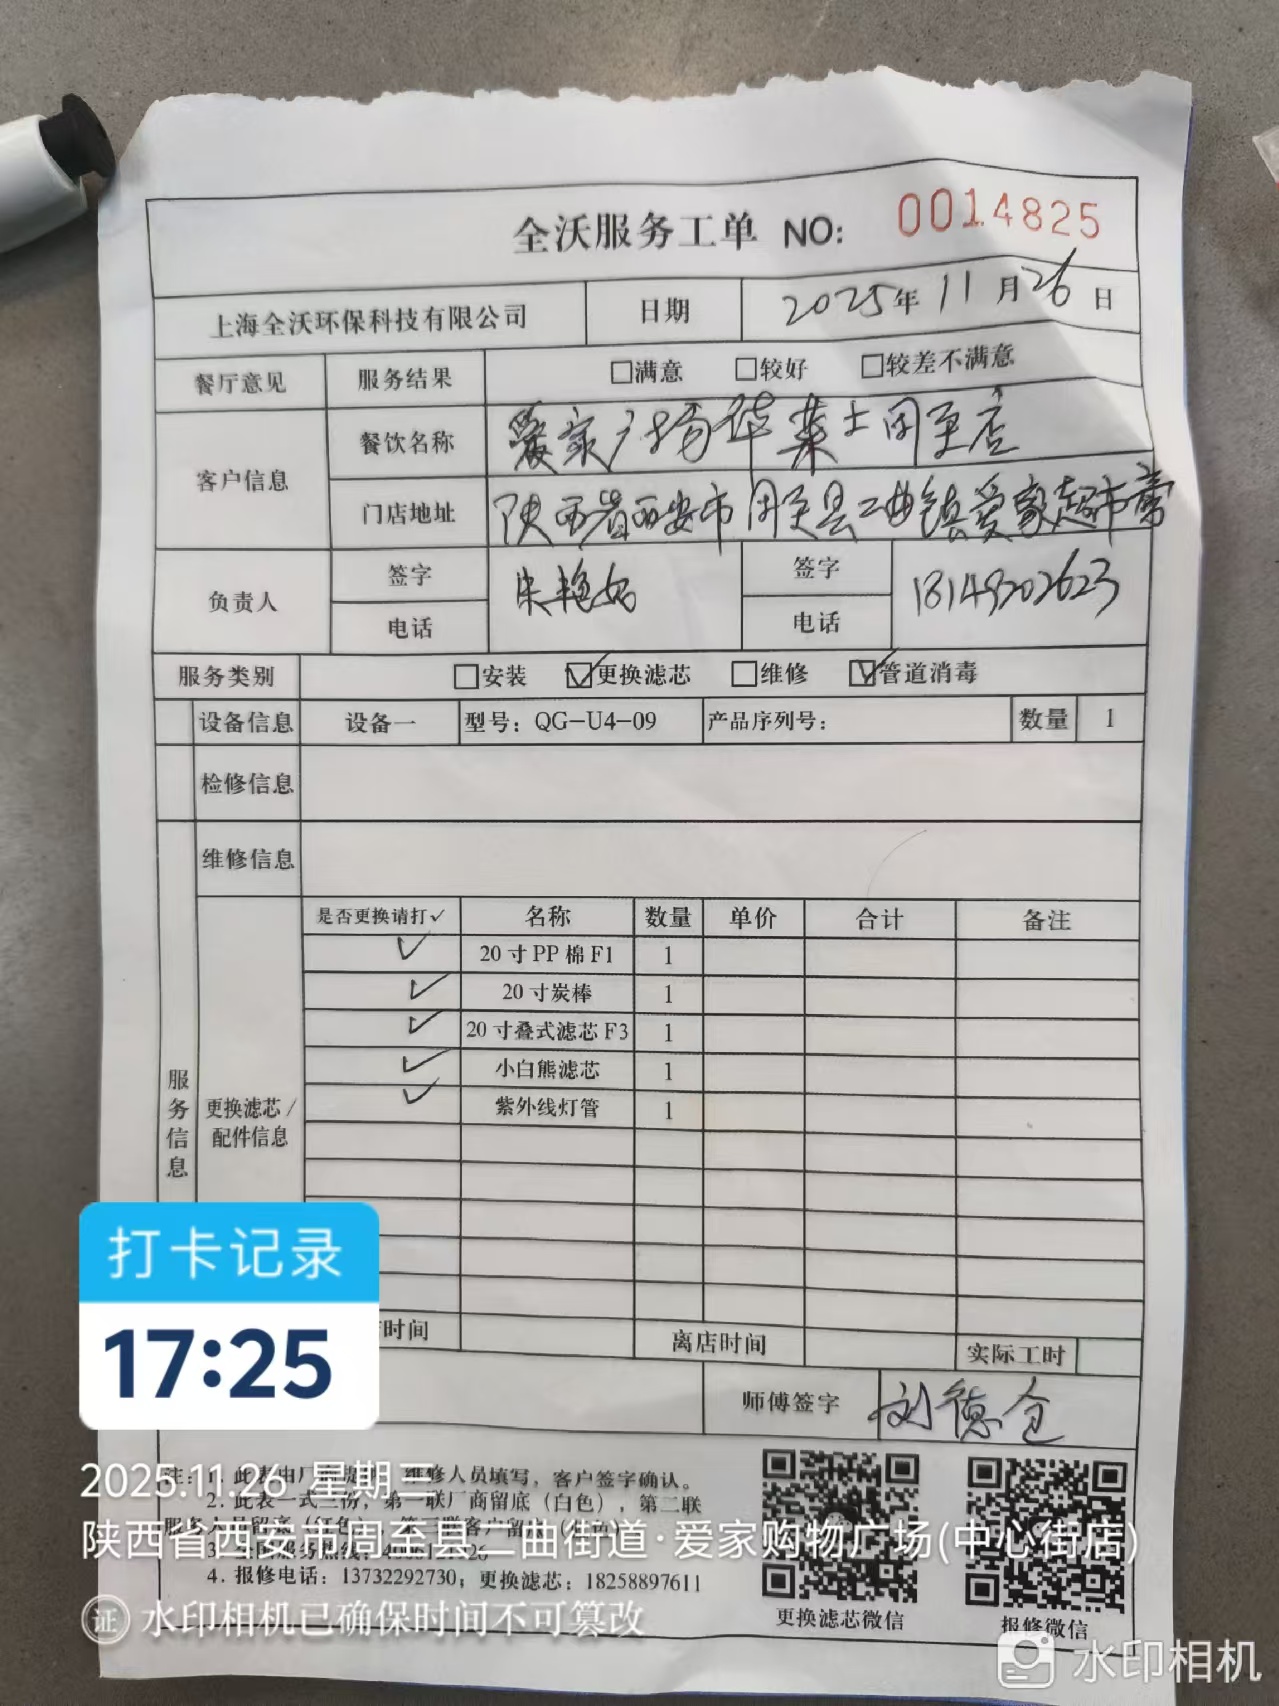 全沃服务工单 NO: 0014825
上海全沃环保科技有限公司 日期 2025年11月26日
餐厅意见 服务结果 □满意 □较好 □较差不满意
客户信息 餐饮名称 爱家广场华莱士周至店
门店地址 陕西省西安市周至县二曲镇爱家超市旁
负责人 签字 朱艳 签字
电话 电话 18149202623
服务类别 □安装 ☑更换滤芯 □维修 ☑管道消毒
设备信息 设备一 型号：QG-U4-09 产品序列号： 数量 1
检修信息
维修信息
服务信息
更换滤芯/
配件信息
是否更换请打✓ 名称 数量 单价 合计 备注
✓ 20寸PP棉F1 1
✓ 20寸炭棒 1
✓ 20寸叠式滤芯F3 1
✓ 小白熊滤芯 1
✓ 紫外线灯管 1
时间 离店时间 实际工时
师傅签字 刘德仓
打卡记录
17:25
注：1. 此表由厂 维修人员填写，客户签字确认。
2. 此表一式三份，第一联厂商留底（白色），第二联
4. 报修电话：13732292730；更换滤芯：18258897611
更换滤芯微信 报修微信
2025.11.26 星期三
陕西省西安市周至县二曲街道·爱家购物广场(中心街店)
证 水印相机已确保时间不可篡改
水印相机